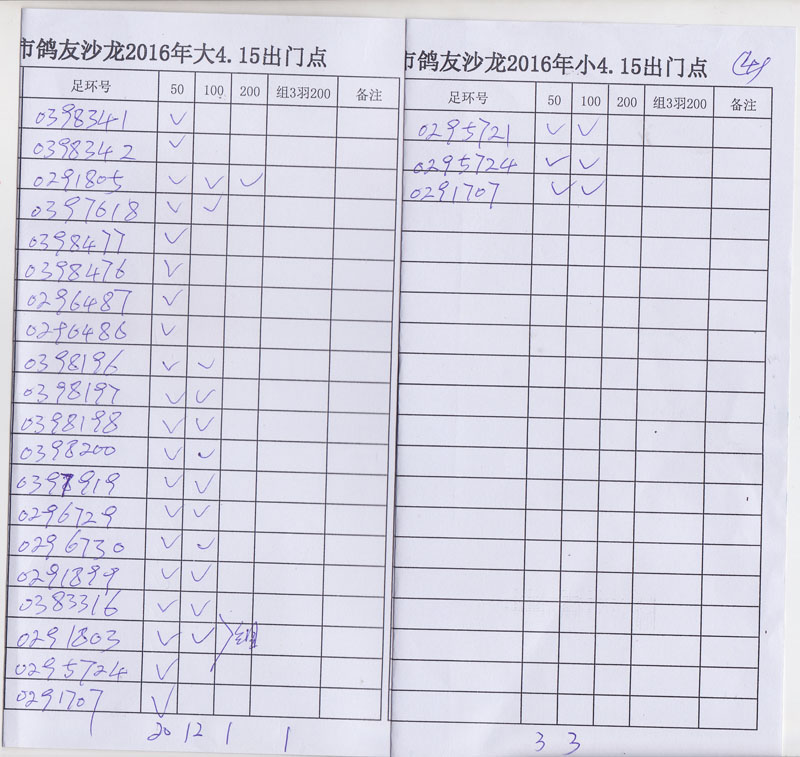 市鸽友沙龙2016年大4.15出门点
足环号 50 100 200 组3羽200 备注
0398341 ✓
0398342 ✓
0291805 ✓ ✓ ✓
0397618 ✓ ✓
0398477 ✓
0398476 ✓
0296487 ✓
0296486 ✓
0398196 ✓ ✓
0398197 ✓ ✓
0398198 ✓ ✓
0398200 ✓ ✓
0397919 ✓ ✓
0296729 ✓ ✓
0296730 ✓ ✓
0291899 ✓ ✓
0383316 ✓ ✓
0291803 ✓ ✓ 组
0295724 ✓
0291707 ✓
20 12 1 1
市鸽友沙龙2016年小4.15出门点
足环号 50 100 200 组3羽200 备注
0295721 ✓ ✓
0295724 ✓ ✓
0291707 ✓ ✓
3 3